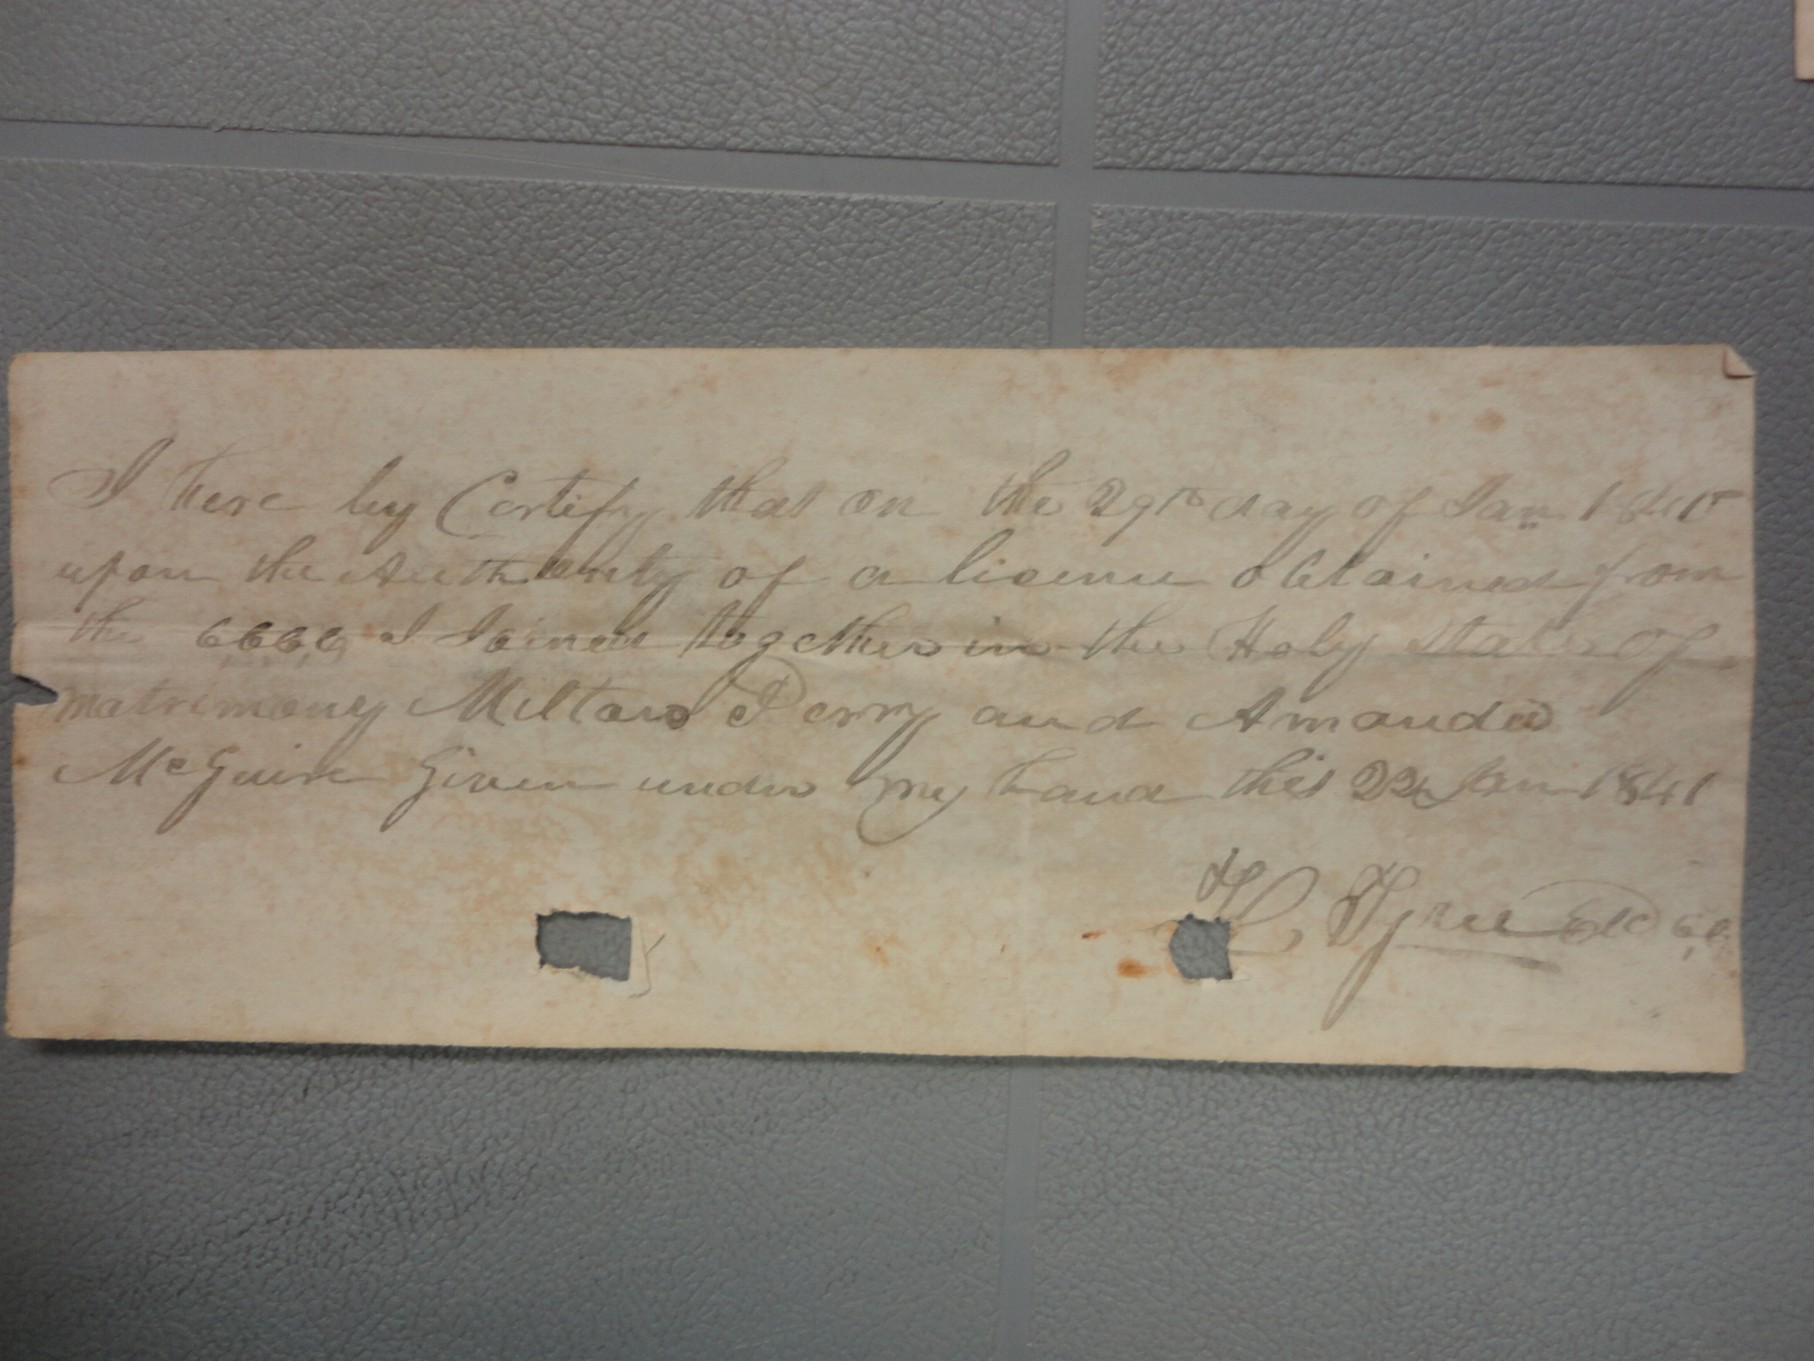 I here by Certify that on the 29th day of Jan 1841
upon the Authority of a licence obtained from
the C C C C I Joined together in the Holy State of
matrimony Milton Perry and Amanda
McGuire Given under my hand this 22 Jan 1841
H Tyree